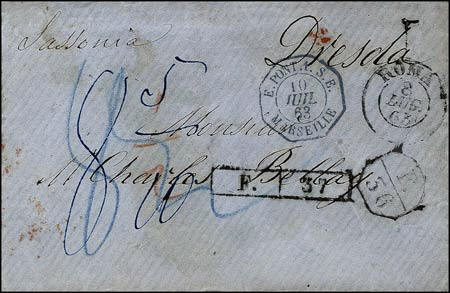 Sassonia
Dresda
E. PONT. P. S. E.
10
JUIL
63
MARSEILLE
ROMA
8
LUG
63
Monsieur
M Charles
F. 37
F
36